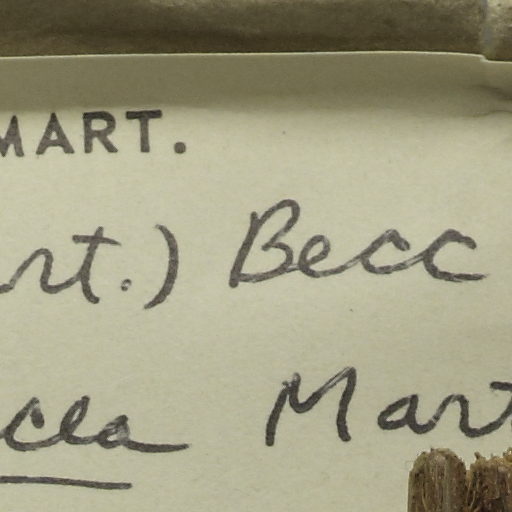 MART.
rt.) Becc
cea Mart